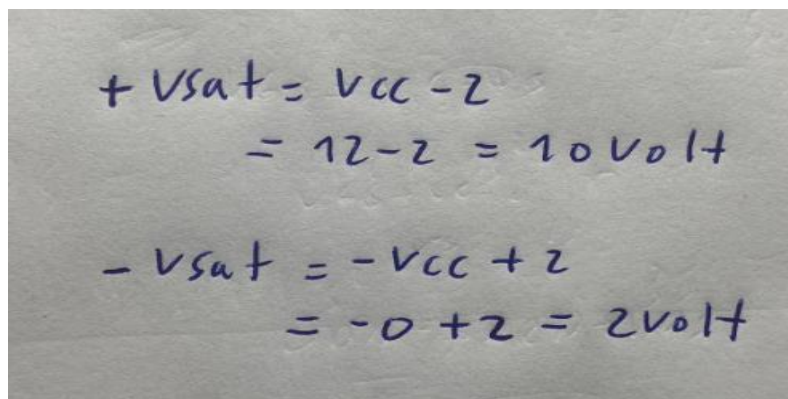 + Vsat = Vcc - 2
= 12 - 2 = 10 volt
- Vsat = - Vcc + 2
= - 0 + 2 = 2 volt